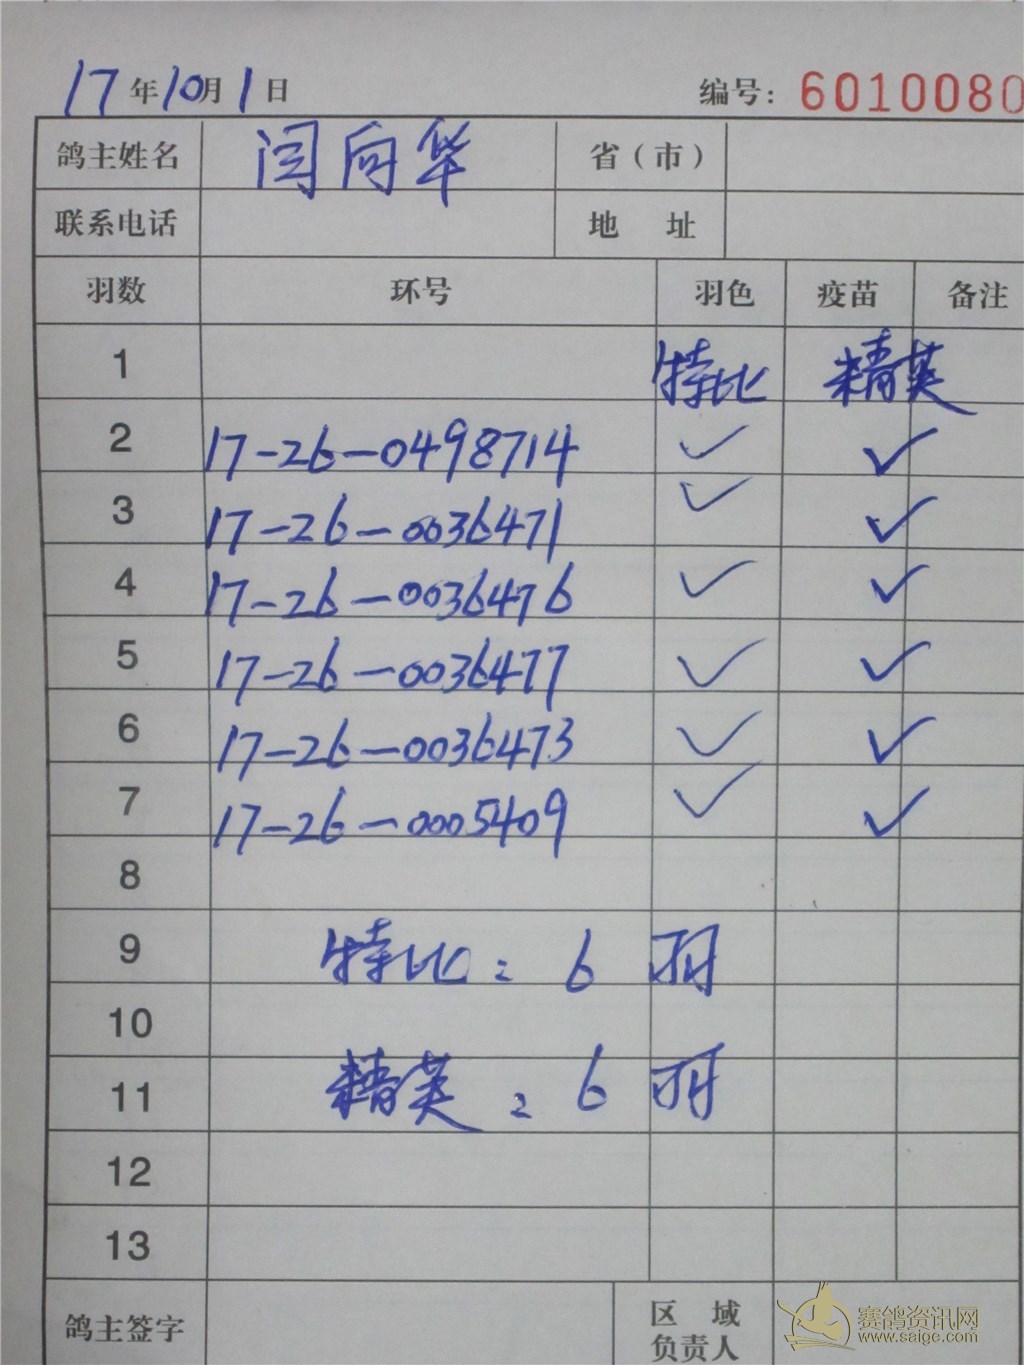 17年10月1日 编号: 6010080
鸽主姓名 闫向华 省(市)
联系电话 地 址
羽数 环号 羽色 疫苗 备注
1 特比 精英
2 17-26-0498714 ✓ ✓
3 17-26-0036471 ✓ ✓
4 17-26-0036476 ✓ ✓
5 17-26-0036477 ✓ ✓
6 17-26-0036473 ✓ ✓
7 17-26-0005409 ✓ ✓
8
9 特比: 6 羽
10
11 精英: 6 羽
12
13
鸽主签字 区 域
负责人
赛鸽资讯网
www.saige.com